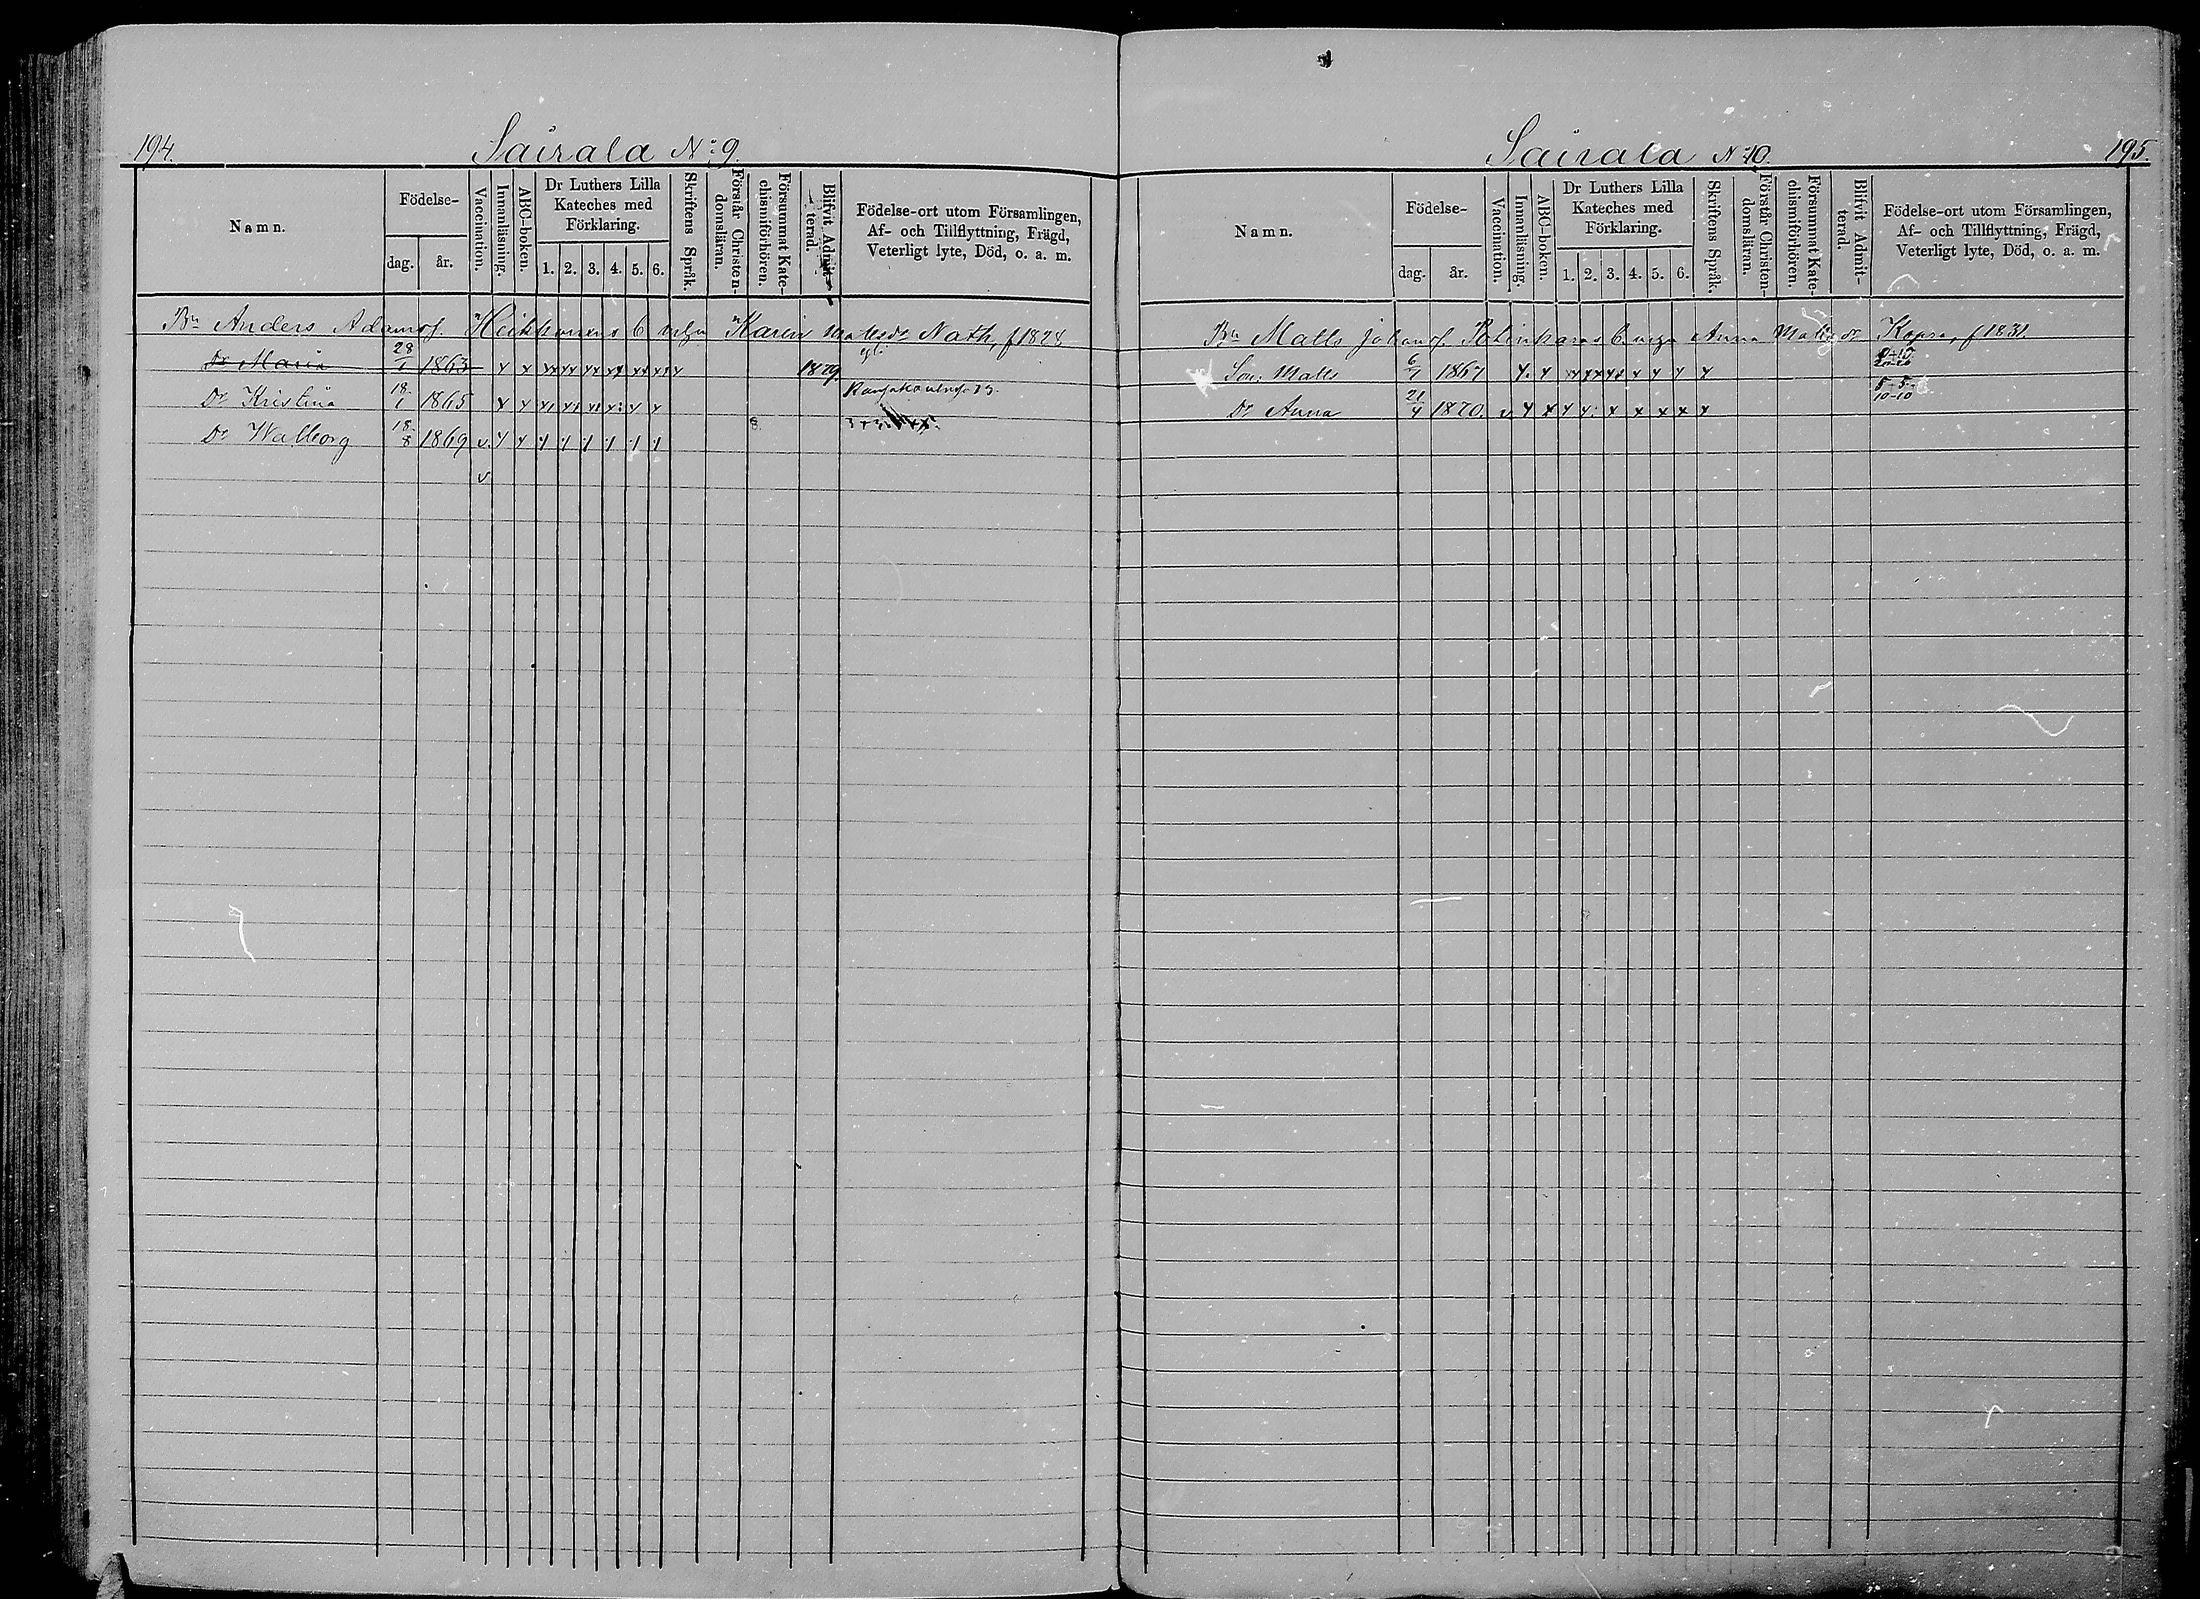 194.
Sairala No 9.
Namn.
Födelse-
dag. år.
Vaccination.
Innanläsning.
ABC-boken.
Dr Luthers Lilla Kateches med Förklaring.
1. 2. 3. 4. 5. 6.
Skriftens Språk.
Förstår Christendomsläran.
Försummat Katechismiförhören.
Blifvit Admitterad.
Födelse-ort utom Församlingen, Af- och Tillflyttning, Frägd, Veterligt lyte, Död, o. a. m.
Bn Anders Adamsf. Heikkonens Karin Nath, f 1828
Dr Maria 28/1 1863 1879.
Dr Kristina 18/1 1865
Dr Walborg 18/8 1869
195.
Sairala No 10.
Namn.
Födelse-
dag. år.
Vaccination.
Innanläsning.
ABC-boken.
Dr Luthers Lilla Kateches med Förklaring.
1. 2. 3. 4. 5. 6.
Skriftens Språk.
Förstår Christendomsläran.
Försummat Katechismiförhören.
Blifvit Admitterad.
Födelse-ort utom Församlingen, Af- och Tillflyttning, Frägd, Veterligt lyte, Död, o. a. m.
Bn Matts Johansf. Anna Kopra, f 1831.
Son: Matts 6/7 1867
Dr Anna 21/4 1870.
10-10